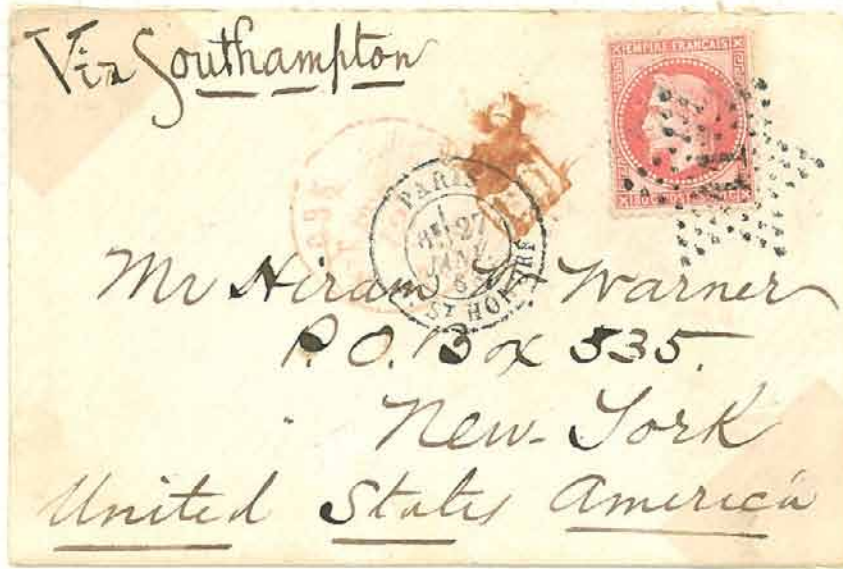 Via Southampton
EMPIRE FRANÇAIS
PARIS
27
ST HONORE
Mr Hiram Warner
P.O. Box 535.
New-York
United States America